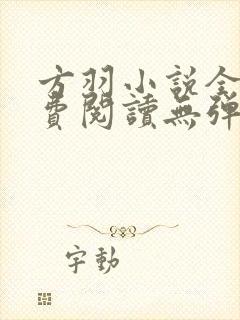 方羽小説全
費閱讀無彈
字動